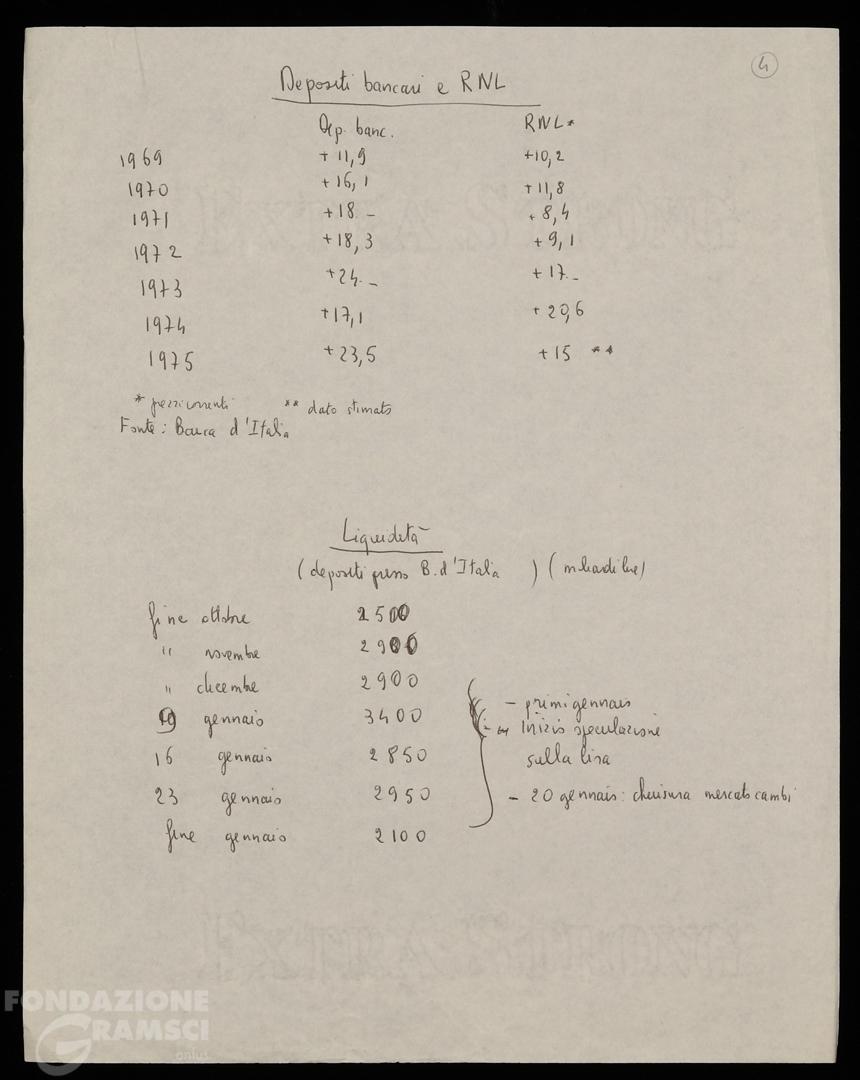 4
Depositi bancari e RNL
Dep. banc. RNL*
1969 + 11,9 +10,2
1970 + 16,1 + 11,8
1971 +18 - + 8,4
1972 + 18,3 + 9,1
1973 +24.- + 17.-
1974 +17,1 + 20,6
1975 + 23,5 + 15 **
* prezzi correnti ** dato stimato
Fonte: Banca d'Italia
Liquidità
(depositi presso B. d'Italia ) (miliardi lire)
fine ottobre 2500
" novembre 2900
" dicembre 2900
gennaio 3400
- primi gennaio
inizio speculazione
16 gennaio 2850
sulla lira
23 gennaio 2950
- 20 gennaio: chiusura mercato cambi
fine gennaio 2100
FONDAZIONE
GRAMSCI
onlus